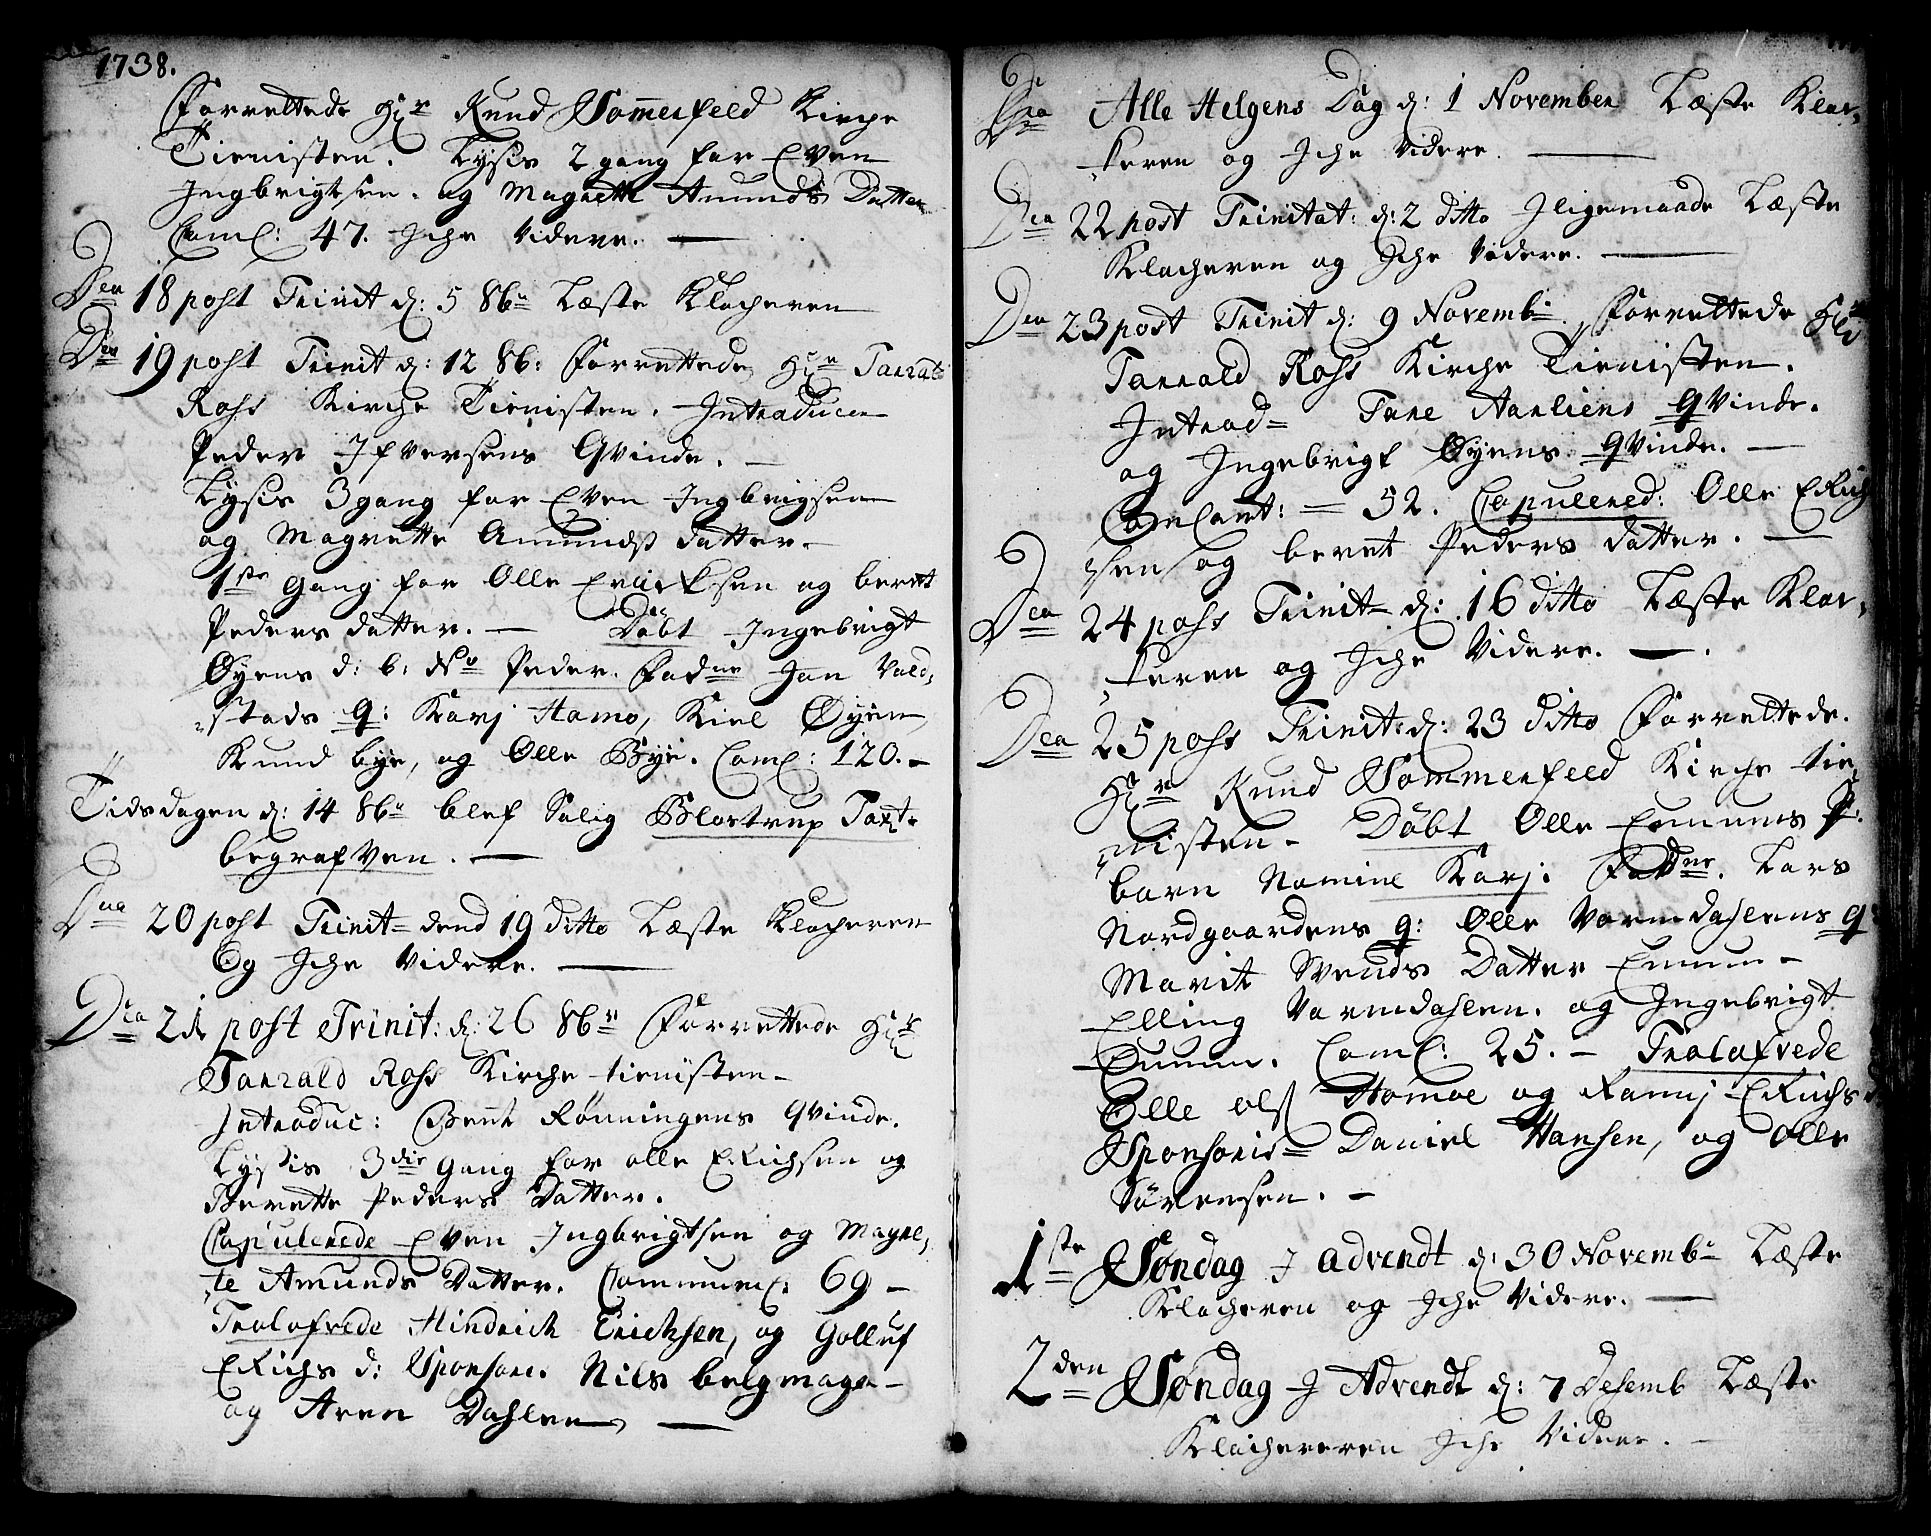 1738.
Forrettede Hr Knud Sommerfeld Kirche
Tienisten. Lysis 2 gang for Even
Ingbrigtsen. og Magrette Amunds Datter
Coml: 47. Iche Videre. —
Dca 18 post Trinit d: 5 8br Læste Klocheren
Dca 19 post Trinit d: 12 8b: Forrettede Hr Tarrald
Ross Kirche Tienisten. Introducer
Peder Ifversens Qvinde. —
Lysis 3 gang for Even Ingbrigsen
og Magrette Amunds datter. —
1ste Gang for Olle Erricksen og beret
Peders datter. — Døbt Ingebrigt
Øyens d: b: No Peder. Fadne Jon Vold,
„stads q: Karj Hamo, Kiel Øyen
Knud bye, og Olle Bye. Coml: 120. –
Tidsdagen d: 14 8br blef Salig Blostrup Taxt.
begrafven. —
Dca 20 post Trinit= dend 19 ditto Læste Klocheren
Og Iche Videre. —
Dca 21 post Trinit: d: 26 8br Forrettede Hr
Tarrald Ross Kirche tienisten –
Introduc: Bent Rønningens qvinde.
Lysis 3die Gang for olle Erichsen og
Berette Peders Datter.
Copulerede Even Ingbrigtsen og Magre,
„te Amunds Datter. Communic: 69 –
Trolofvede Hindrich Erichsen, og Golluf
Erichs d: Sponsor: Nils belgmager
og Aren Dahlen —
Dca Alle Helgens Dag d: 1 November Læste Kloc,
„keren og Iche Videre. —
Dca 22 post Trinitat: d: 2 ditto Iligemaade Læste
Klocheren og Iche Videre. —
Dca 23 post Trinit d: 9 Novembr Forrettede Hr
Tarrald Ross Kirche Tienisten.
Introd= Tare Aarliens qvinde.
og Ingebrigt Øyens qvinde. —
Comcant: = 52. Copulered: Olle Erich
sen og beret Peders datter. —
Dca 24 poss Trinit= d: 16 ditto Læste Kloc,
„keren og Iche Videre. —.
Dca 25 poss Trinit: d: 23 ditto Forrettede.
Hr Knud Sommerfeld Kirche tie,
„nisten – Døbt Olle Emmems P.
barn Nomine Karj. Fadne. Lars
Nordgaardens q: Olle Vormdahlens q
Marit Svends Datter Emmem –
Elling Vormdahlen. og Ingebrigt
Emmem. Coml: 25. – Trolofvede
Olle ols Hamoe og Ramij Erichs d
Sponsoris= Daniel Hansen, og Olle
Sørensen. –
1ste Søndag I Advendt d: 30 Novembr Læste
Klocheren og Iche Videre. —
2den Søndag I Advendt d: 7 Desemb Læste
Klocheren Iche Videre. –